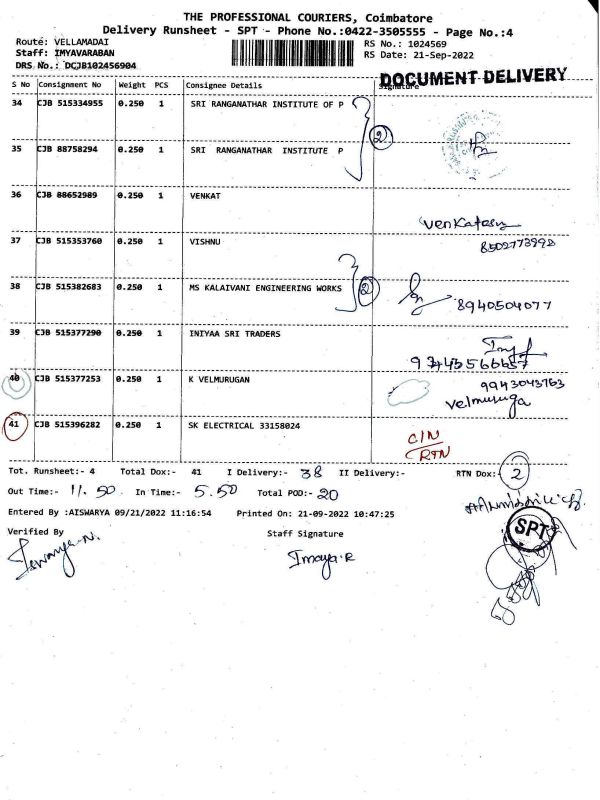 THE PROFESSIONAL COURIERS, Coimbatore
Delivery Runsheet - SPT - Phone No.:0422-3505555 - Page No.:4
Route: VELLAMADAI
RS No.: 1024569
Staff: IMYAVARABAN
RS Date: 21-Sep-2022
DRS No.: DCJB102456904
DOCUMENT DELIVERY
S No Consignment No Weight PCS Consignee Details Signature
34 CJB 515334955 0.250 1 SRI RANGANATHAR INSTITUTE OF P
2
35 CJB 88758294 0.250 1 SRI RANGANATHAR INSTITUTE P
36 CJB 88652989 0.250 1 VENKAT
37 CJB 515353760 0.250 1 VISHNU
8502773992
38 CJB 515382683 0.250 1 MS KALAIVANI ENGINEERING WORKS 2
8940504077
39 CJB 515377290 0.250 1 INIYAA SRI TRADERS
40 CJB 515377253 0.250 1 K VELMURUGAN
9943043763
velmuruga
41 CJB 515396282 0.250 1 SK ELECTRICAL 33158024
C/N
RTN
Tot. Runsheet:- 4 Total Dox:- 41 I Delivery:- 38 II Delivery:- RTN Dox:- 2
Out Time:- 11.50 In Time:- 5.50 Total POD:- 20
Entered By :AISWARYA 09/21/2022 11:16:54 Printed On: 21-09-2022 10:47:25
Verified By Staff Signature
SPT
Iswarya.N.
Imaya.R